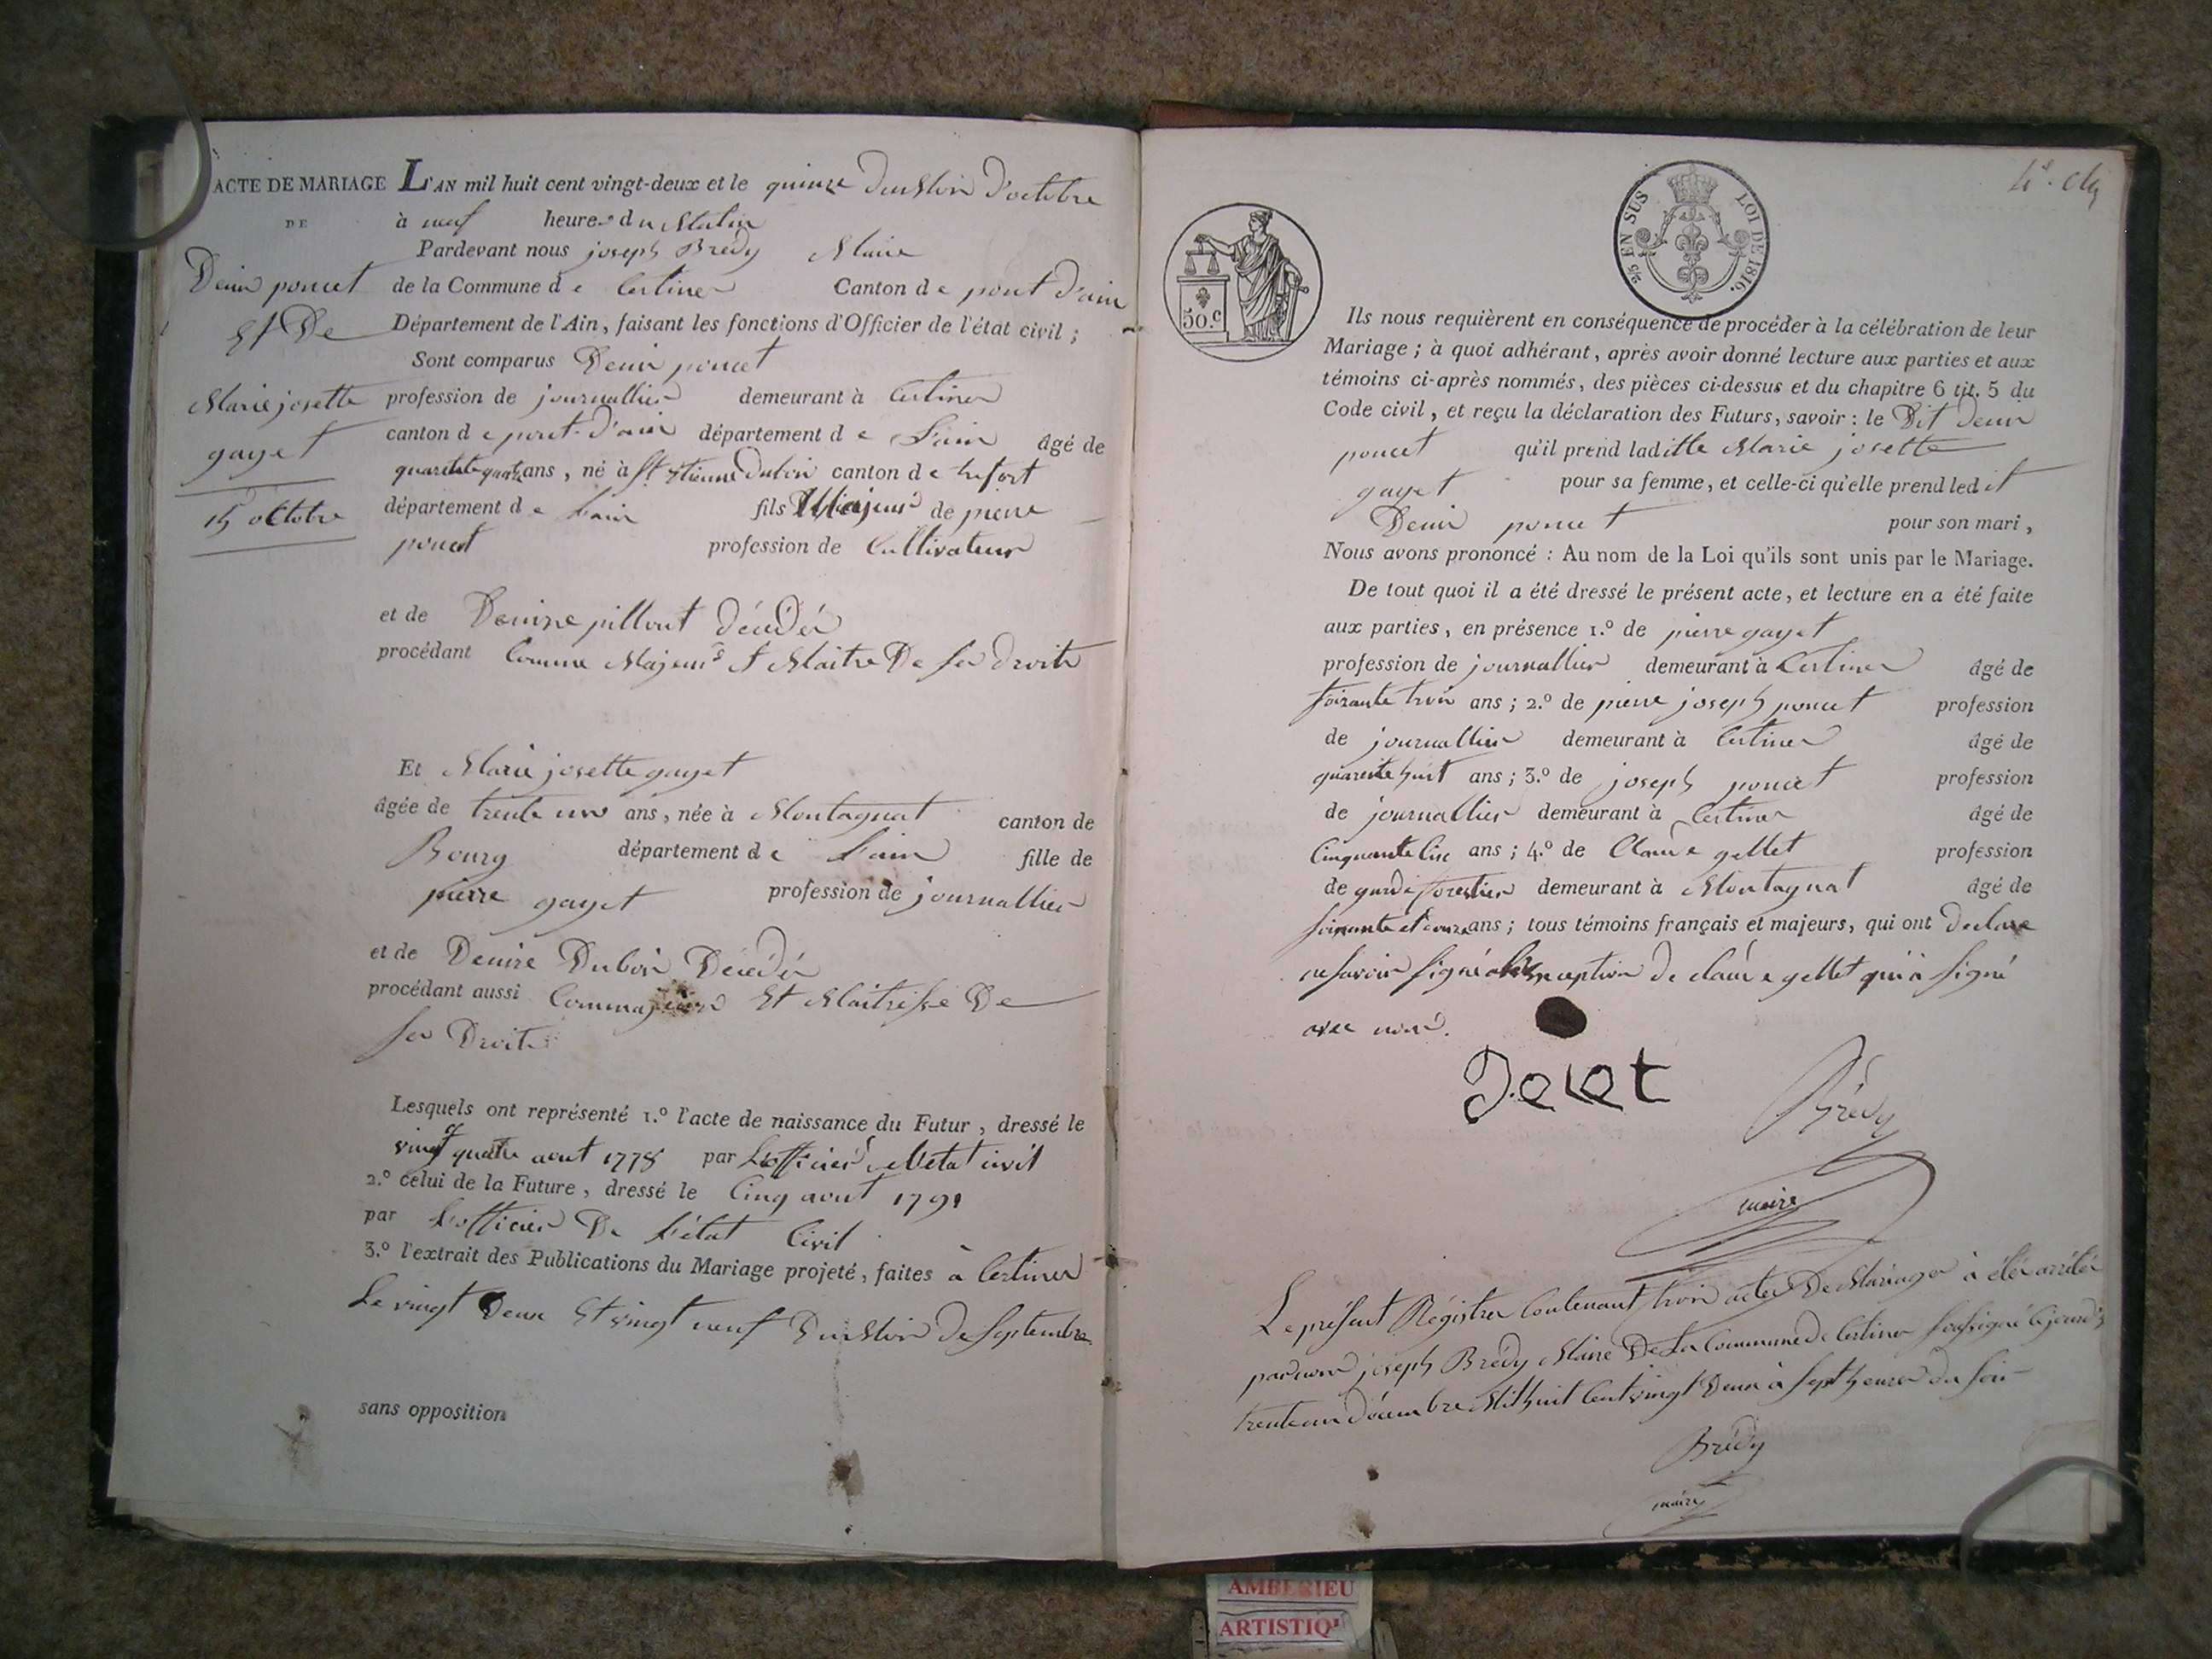 ACTE DE MARIAGE
DE
Denis poncet
Et De
Marie josette
gayet
15 octobre
L'AN mil huit cent vingt-deux et le quinze du Mois d'octobre
à neuf heures du Matin
Pardevant nous joseph Brédy Maire
de la Commune de Certines Canton de pont d'ain
Département de l'Ain, faisant les fonctions d'Officier de l'état civil ;
Sont comparus Denis poncet
profession de journallier demeurant à Certines
canton de pont-d'ain département de L'ain âgé de
quarante quatre ans, né à St. Etienne Dubois canton de trefort
département de L'ain fils Majeur de pierre
poncet profession de Cultivateur
et de Denise pillout décédés
procédant Comme Majeur Et Maitre De Ses droits
Et Marie josette gayet
âgée de trente un ans, née à Montagnat canton de
Bourg département de L'ain fille de
pierre gayet profession de journallier
et de Denise Dubois Décédés
procédant aussi Comme Majeure Et Maitresse De
Ses Droits
Lesquels ont représenté 1.º l'acte de naissance du Futur, dressé le
vingt quatre aout 1778 par L'officier de L'état civil
2.º celui de la Future, dressé le Cinq aout 1791
par L'officier De L'état Civil
3.º l'extrait des Publications du Mariage projeté, faites à Certines
Le vingt Deux Et vingt neuf Du Mois de Septembre
sans opposition
50.c
2/5 EN SUS LOI DE 1816.
Ils nous requièrent en conséquence de procéder à la célébration de leur
Mariage ; à quoi adhérant, après avoir donné lecture aux parties et aux
témoins ci-après nommés, des pièces ci-dessus et du chapitre 6 tit. 5 du
Code civil, et reçu la déclaration des Futurs, savoir : le Dit Denis
poncet qu'il prend laditte Marie josette
gayet pour sa femme, et celle-ci qu'elle prend ledit
Denis poncet pour son mari,
Nous avons prononcé : Au nom de la Loi qu'ils sont unis par le Mariage.
De tout quoi il a été dressé le présent acte, et lecture en a été faite
aux parties, en présence 1.º de pierre gayet
profession de journallier demeurant à Certines âgé de
soixante trois ans ; 2.º de pierre joseph poncet profession
de journallier demeurant à Certines âgé de
quarente huit ans ; 3.º de joseph poncet profession
de journallier demeurant à Certines âgé de
Cinquante Six ans ; 4.º de Claude gellet profession
de garde forestier demeurant à Montagnat âgé de
soixante et douze ans ; tous témoins français et majeurs, qui ont Declaré
ne savoir signé a L'exception de claude gellet qui à Signé
avec nous.
Brédy
maire
Le présent Régistre Contenant trois actes De Mariages à été arrêté
par nous joseph Brédy Maire De La Commune de Certines Soussigné
trente un décembre Mil huit Cent vingt Deux à Sept heures du Soir
Brédy
maire
AMBERIEU
ARTISTIQ